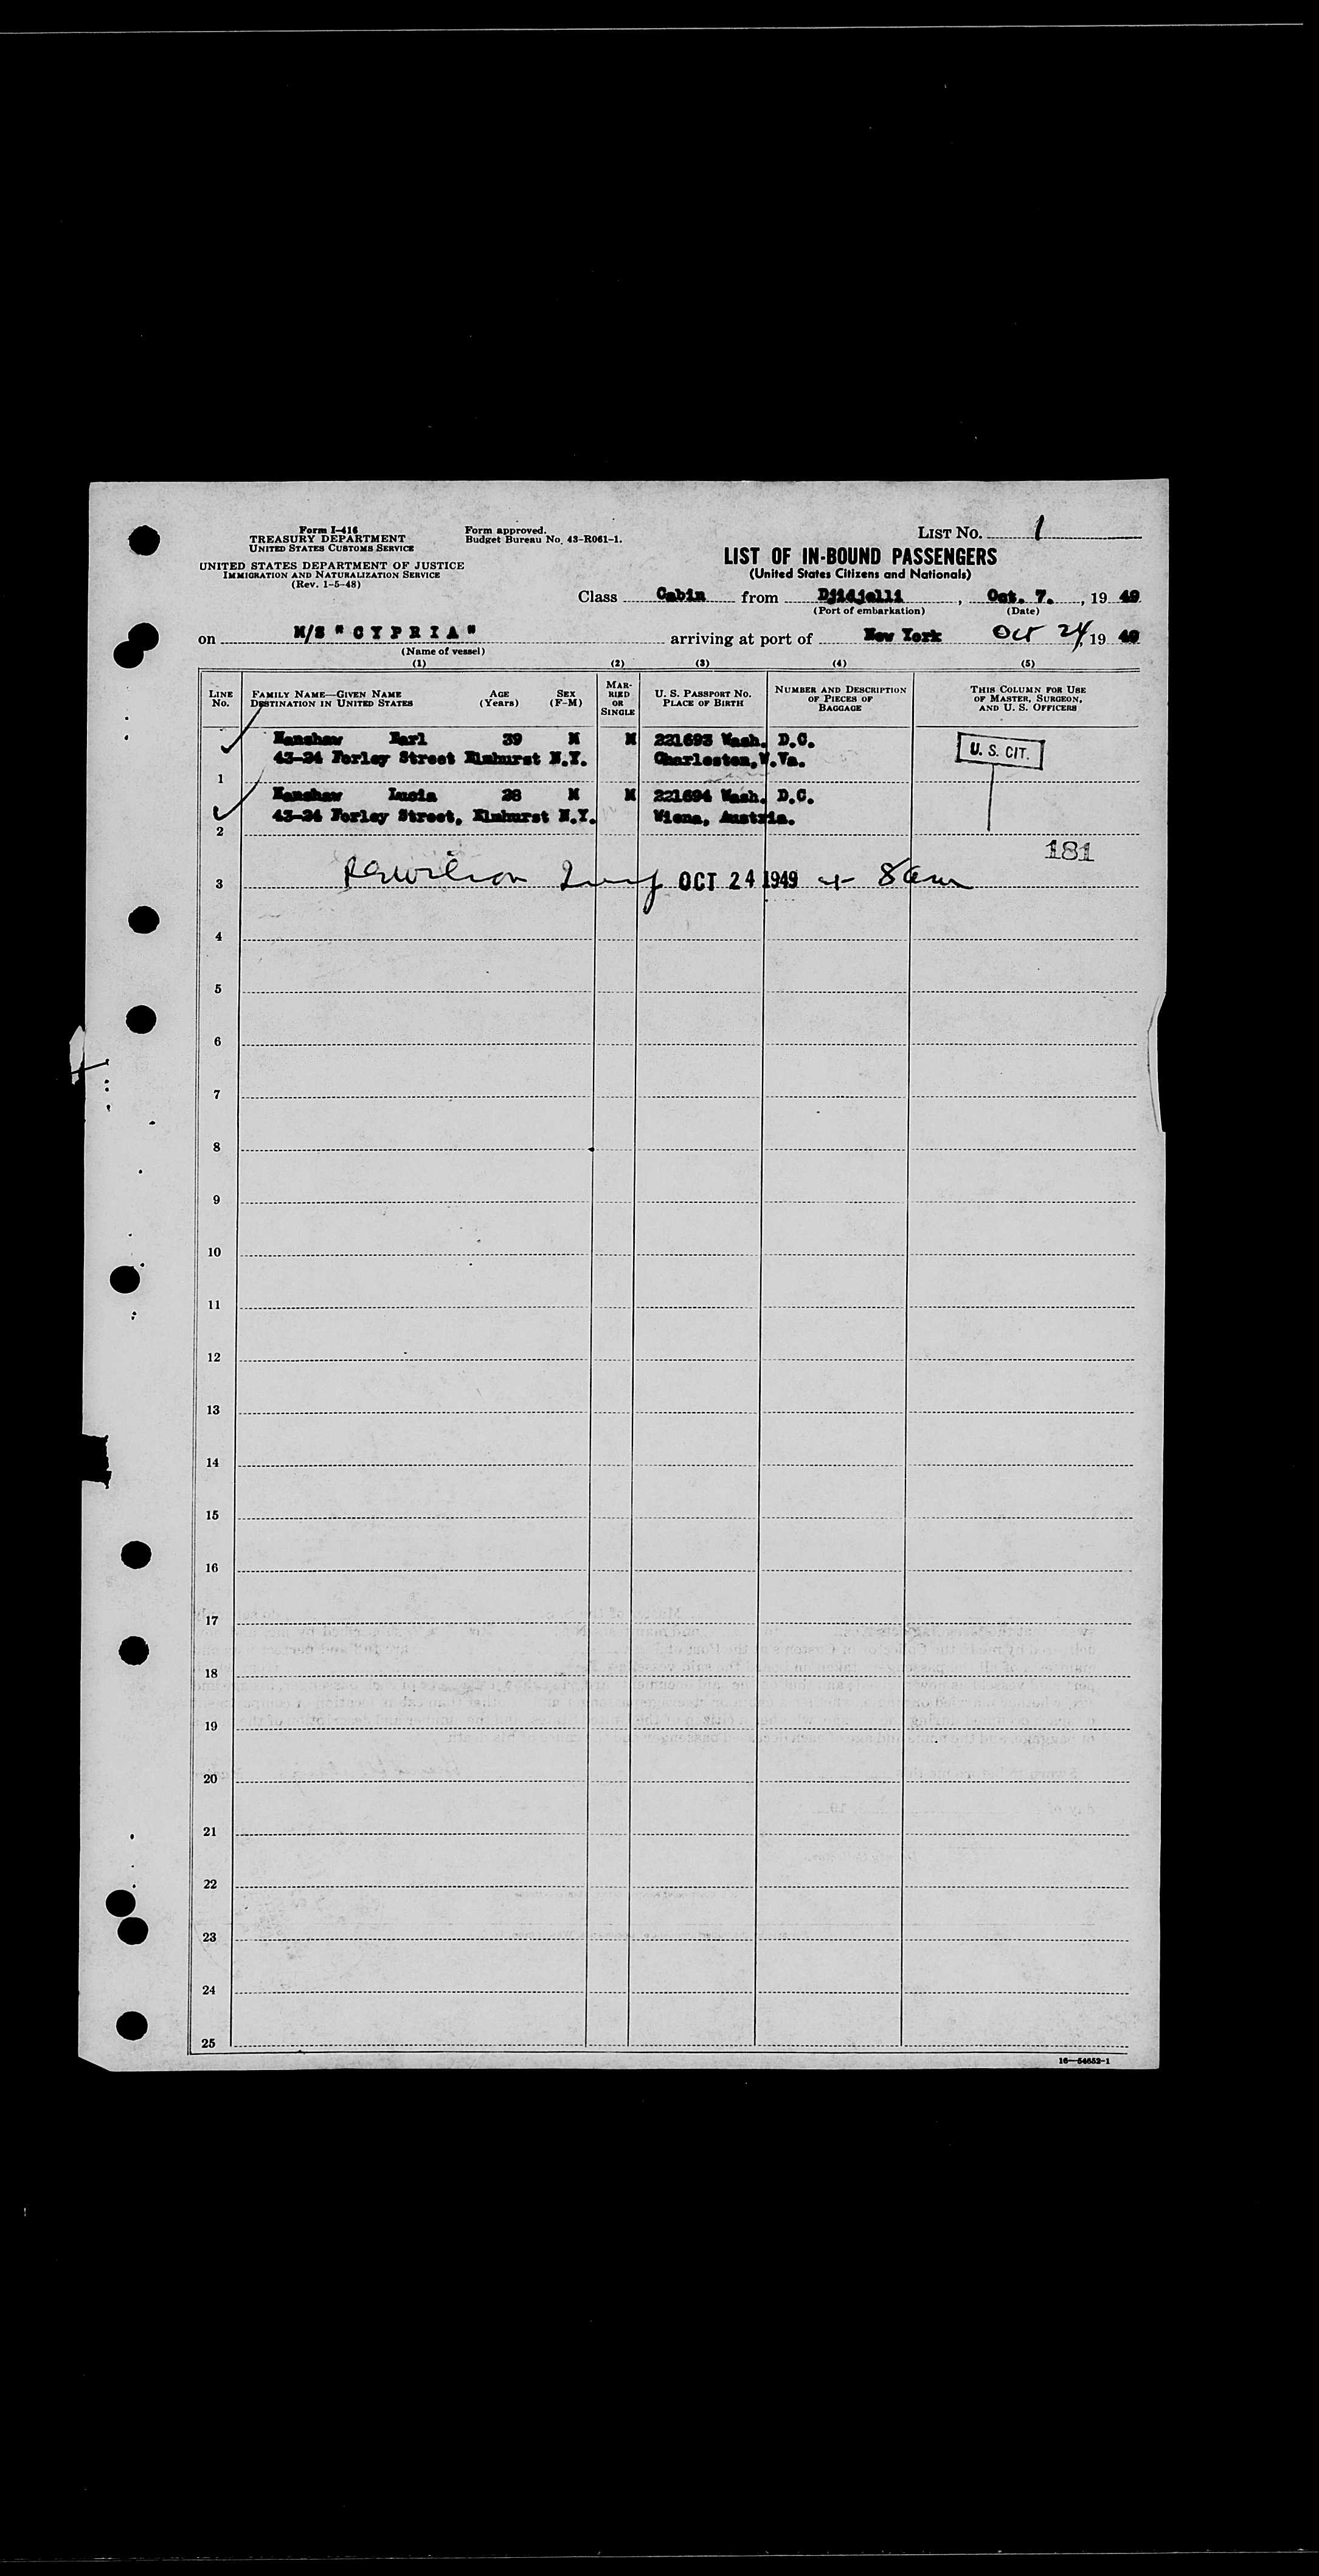 Form I-416
TREASURY DEPARTMENT
UNITED STATES CUSTOMS SERVICE
UNITED STATES DEPARTMENT OF JUSTICE
IMMIGRATION AND NATURALIZATION SERVICE
(Rev. 1-5-48)
Form approved.
Budget Bureau No. 43-R061-1.
LIST No. 1
LIST OF IN-BOUND PASSENGERS
(United States Citizens and Nationals)
Class Cabin from Djidjelli, Oct. 7., 19 49
(Port of embarkation) (Date)
on M/S "CYPRIA" arriving at port of New York Oct 24, 19 49
(Name of vessel)
(1) (2) (3) (4) (5)
LINE No. FAMILY NAME—GIVEN NAME DESTINATION IN UNITED STATES AGE (Years) SEX (F-M) MARRIED OR SINGLE U. S. PASSPORT No. PLACE OF BIRTH NUMBER AND DESCRIPTION OF PIECES OF BAGGAGE THIS COLUMN FOR USE OF MASTER, SURGEON, AND U. S. OFFICERS
Hanshaw Earl 39 M M 221693 Wash. D.C.
43-34 Forley Street Elmhurst N.Y. Charleston, W.Va.
U. S. CIT.
1
Hanshaw Lucia 28 M M 221694 Wash. D.C.
43-34 Forley Street, Elmhurst N.Y. Wiena, Austria.
2
181
3 OCT 24 1949 8 am
4
5
6
7
8
9
10
11
12
13
14
15
16
17
18
19
20
21
22
23
24
25
16—54652-1